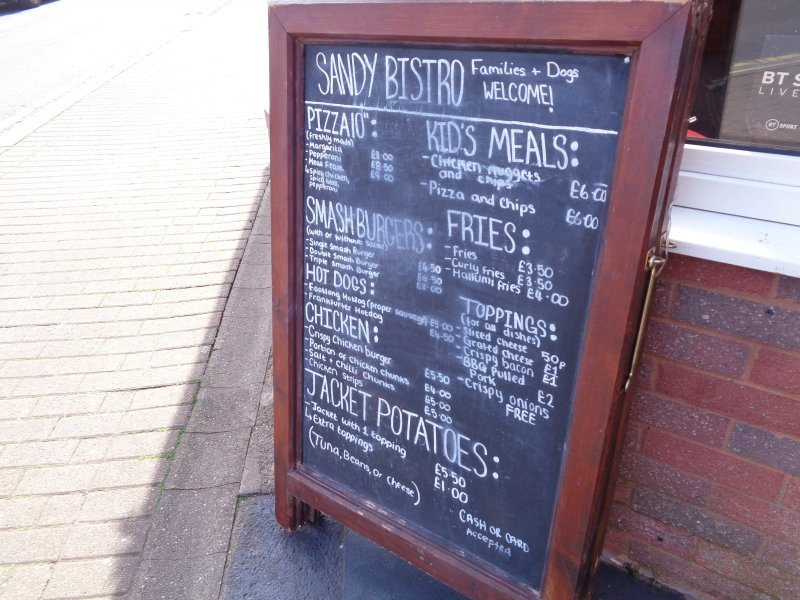 SANDY BISTRO Families + Dogs
WELCOME!
PIZZA 10":
(freshly made)
- Margarita £8.00
- Pepperoni £8.50
- Meat Feast £9.00
↳ spicy chicken,
spicy beef,
pepperoni
KID'S MEALS:
- Chicken nuggets
and chips £6.00
- Pizza and chips £6.00
SMASH BURGERS:
(with or without salad)
- Single Smash Burger £4.50
- Double Smash Burger £6.50
- Triple Smash Burger £8.00
FRIES:
- Fries £3.50
- Curly fries £3.50
- Hallumi fries £4.00
HOT DOGS:
- Footlong Hotdog (proper sausage) £5.00
- Frankfurter Hotdog £4.50
TOPPINGS:
(for all dishes)
- Sliced cheese 50p
- Grated cheese £1
- Crispy bacon £1
- BBQ Pulled
Pork £2
- Crispy onions
FREE
CHICKEN:
- Crispy Chicken burger £5.50
- Portion of chicken chunks £4.00
- Salt + Chilli Chunks £5.00
- Chicken Strips £5.00
JACKET POTATOES:
- Jacket with 1 topping £5.50
↳ Extra toppings £1.00
(Tuna, Beans, Or Cheese)
CASH OR CARD
Accepted
BT S
LIVE
BT SPORT